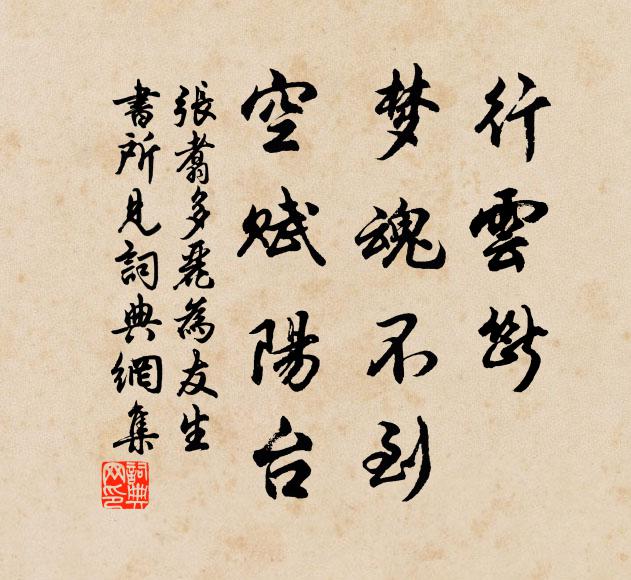 行雲斷
梦魂不到
空赋陽台
張翥多麗為友生
書所見詞典網集
詞典网印